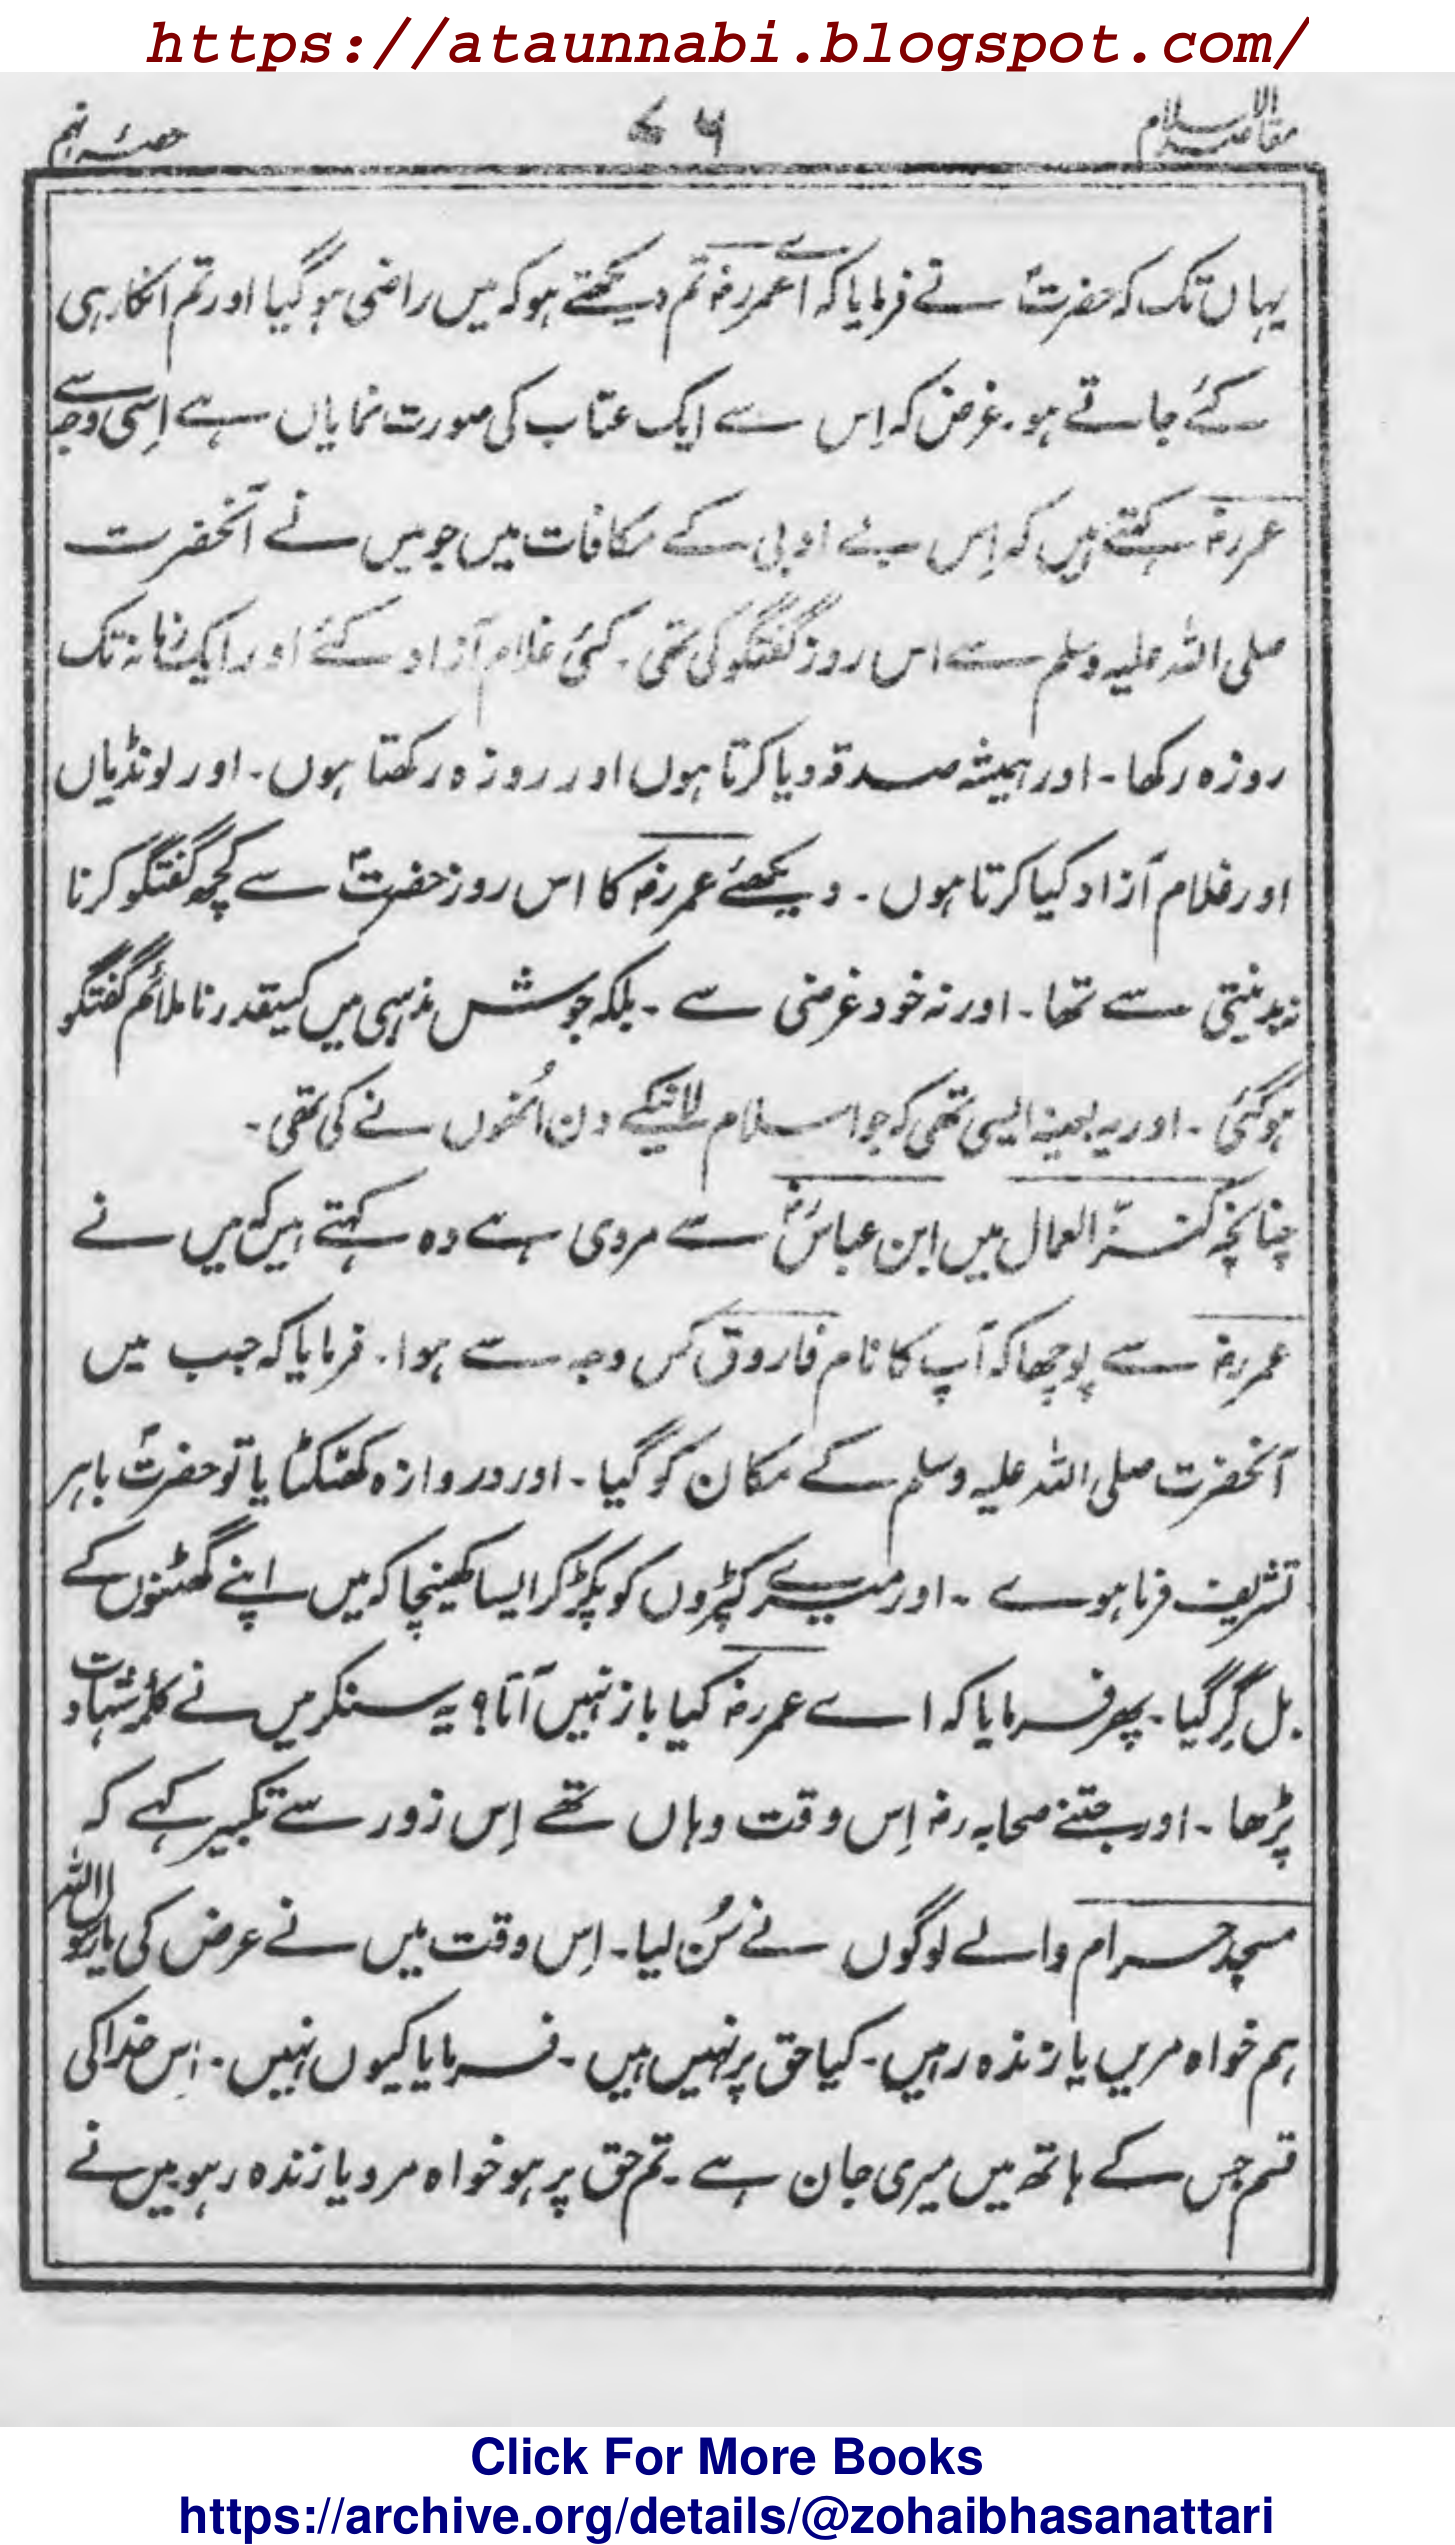 https://ataunnabi.blogspot.com/
مقاصد الاسلام ۷۶ حصۂ نہم
یہاں تک کہ حضرتؐ نے فرمایا کہ اے عمررضؓ تم دیکھتے ہو کہ میں راضی ہو گیا اور تم انکار ہی
کئے جاتے ہو۔ غرض کہ اِس سے ایک عتاب کی صورت نمایاں ہے اِسی وجہ سے
عمررضؓ کہتے ہیں کہ اِس بے ادبی کے مکافات میں جو میں نے آنحضرت
صلی اللہ علیہ وسلم سے اس روز گفتگو کی تھی۔ کئی غلام آزاد کئے اور ایک زمانہ تک
روزہ رکھا۔ اور ہمیشہ صدقہ دیا کرتا ہوں اور روزہ رکھتا ہوں۔ اور لونڈیاں
اور غلام آزاد کیا کرتا ہوں۔ دیکھئے عمررضؓ کا اس روز حضرتؐ سے کچھ گفتگو کرنا
نہ بدنیتی سے تھا۔ اور نہ خودغرضی سے۔ بلکہ جوش مذہبی میں کسیقدر ناملائم گفتگو
ہوگئی۔ اور یہ بعینہ ایسی تھی کہ جو اسلام لانیکے دن اُنھوں نے کی تھی۔
چنانچہ کنزّ العمال میں ابن عباسؓ سے مروی ہے وہ کہتے ہیں کہ میں نے
عمررضؓ سے پوچھا کہ آپ کا نام فاروق کس وجہ سے ہوا۔ فرمایا کہ جب میں
آنحضرت صلی اللہ علیہ وسلم کے مکان کو گیا۔ اور دروازہ کھٹکٹا یا تو حضرتؐ باہر
تشریف فرما ہوے۔ اور میرے کپڑوں کو پکڑ کر ایسا کھینچا کہ میں اپنے گھٹنوں کے
بل گِر گیا۔ پھر فرمایا کہ اے عمررضؓ کیا باز نہیں آتا؟ یہ سنکر میں نے کلمۂ شہادت
پڑھا۔ اور جتنے صحابہ رضؓ اِس وقت وہاں تھے اِس زور سے تکبیر کہے کہ
مسجد حرام والے لوگوں نے سُن لیا۔ اِس وقت میں نے عرض کی یا رسول اللہ
ہم خواہ مریں یا زندہ رہیں۔ کیا حق پر نہیں ہیں۔ فرمایا کیوں نہیں۔ اِس خدا کی
قسم جس کے ہاتھ میں میری جان ہے۔ تم حق پر ہو خواہ مرو یا زندہ رہو میں نے
Click For More Books
https://archive.org/details/@zohaibhasanattari